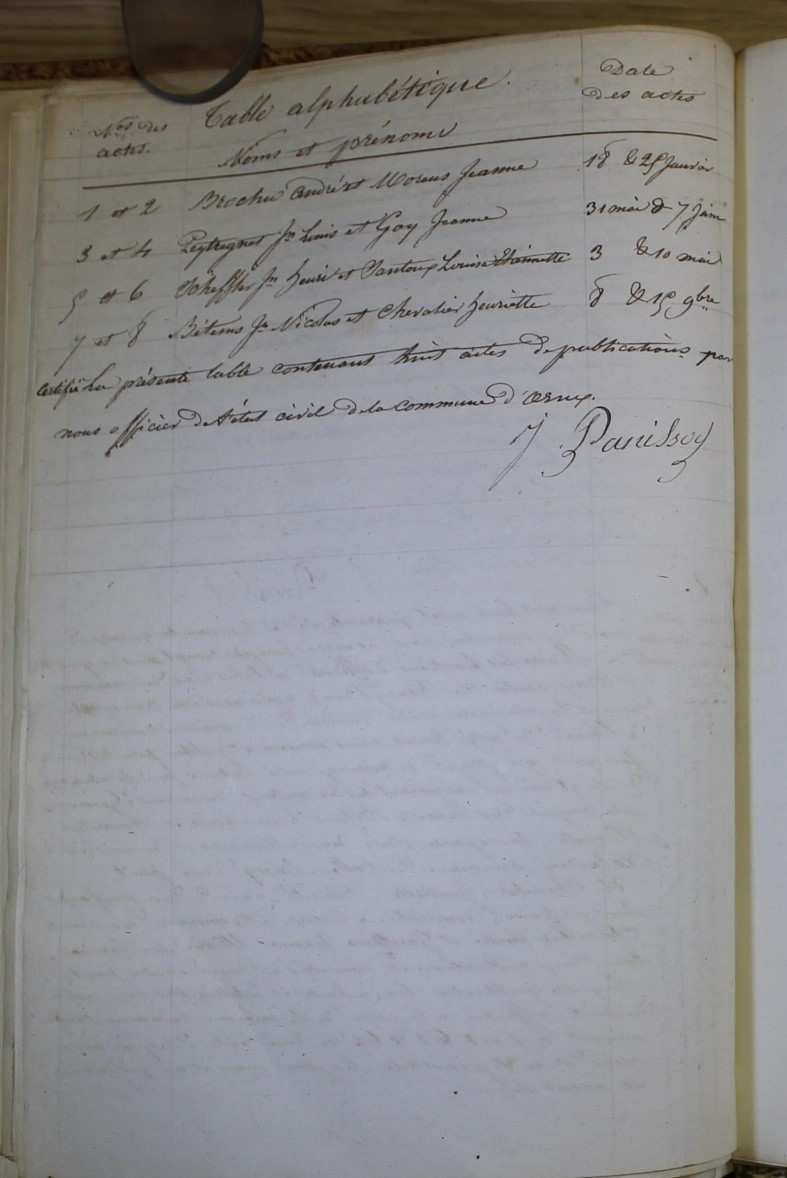 Table alphabétique.
Nos des actes.
Noms et prénoms
Date des actes
1 et 2 Brochu André et Moreux Jeanne 18 & 25 Janvier
3 et 4 Peytregnet Jn Louis et Goy Jeanne 31 mai & 7 Juin
5 et 6 Scheffter Jn henri et Louise Etiennette 3 & 10 mai
7 et 8 Bétems Jn Nicolas et Chevalier henriette 8 & 15 9bre
Certifié La présente table contenant huit actes de publications par
nous officier de l'état civil de la commune d'ornex.
J Panissod